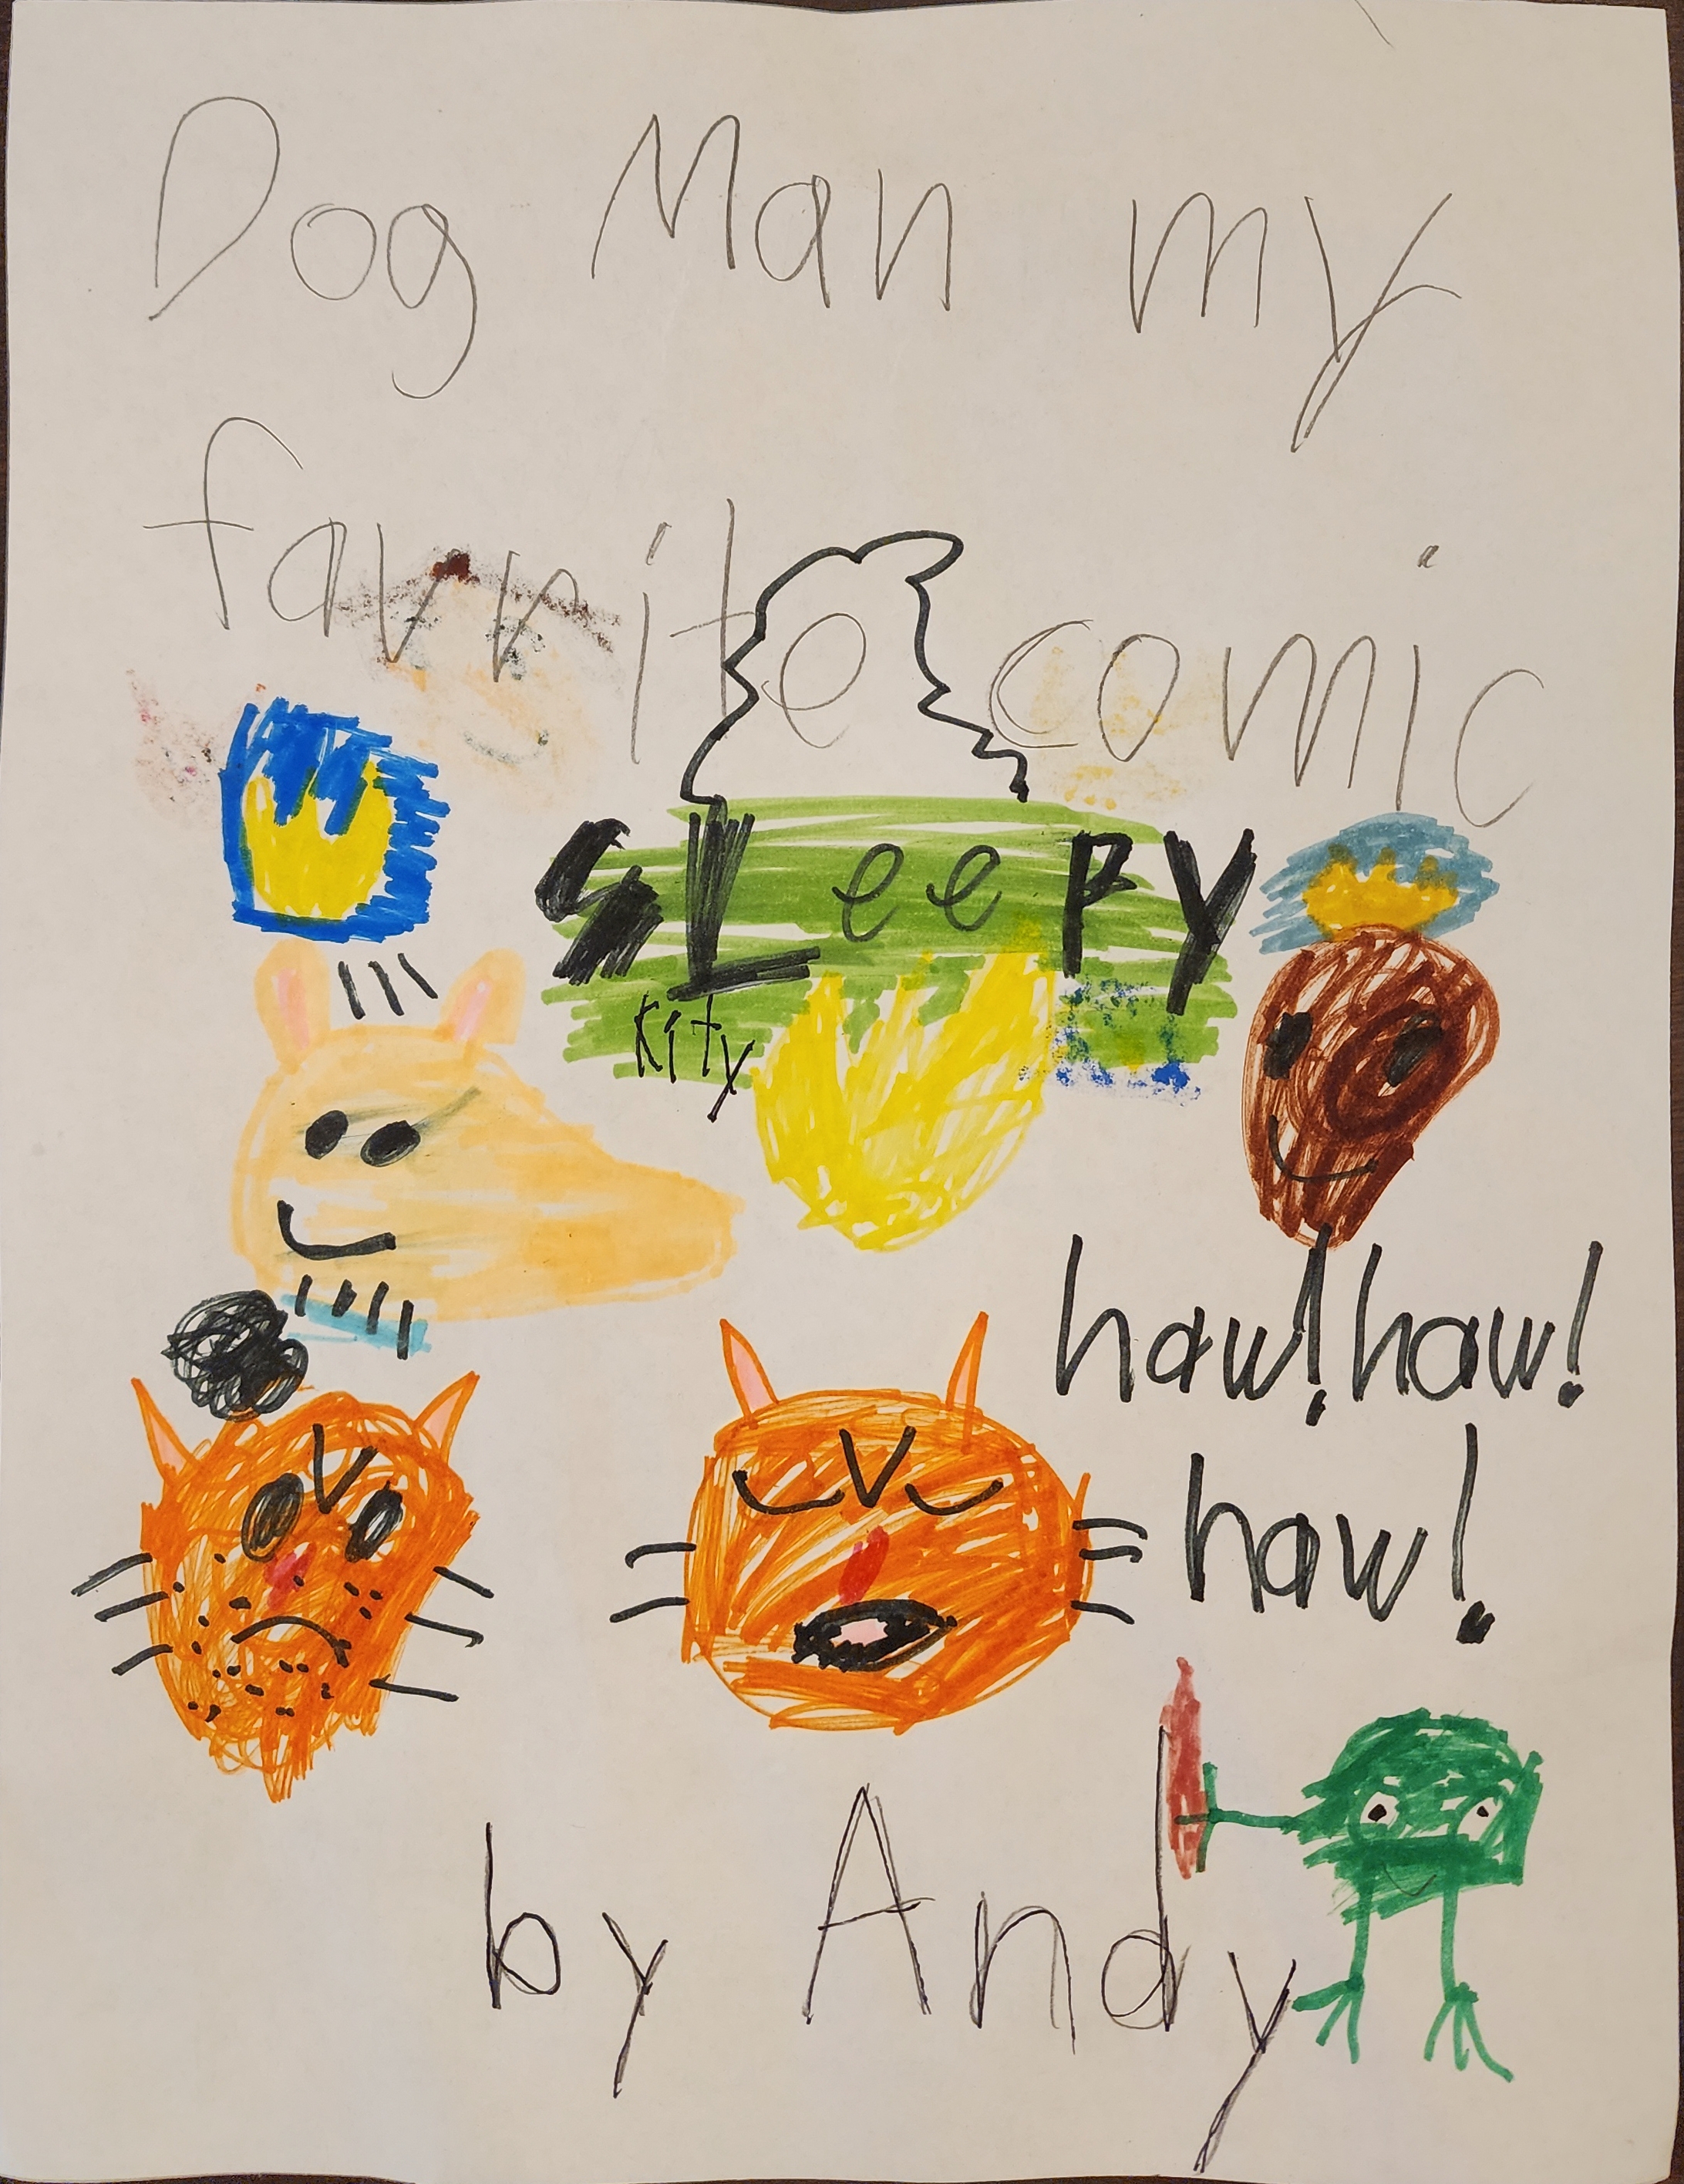 Dog Man my
favrite comic
SLeePY
Kity
haw! haw!
haw!
by Andy